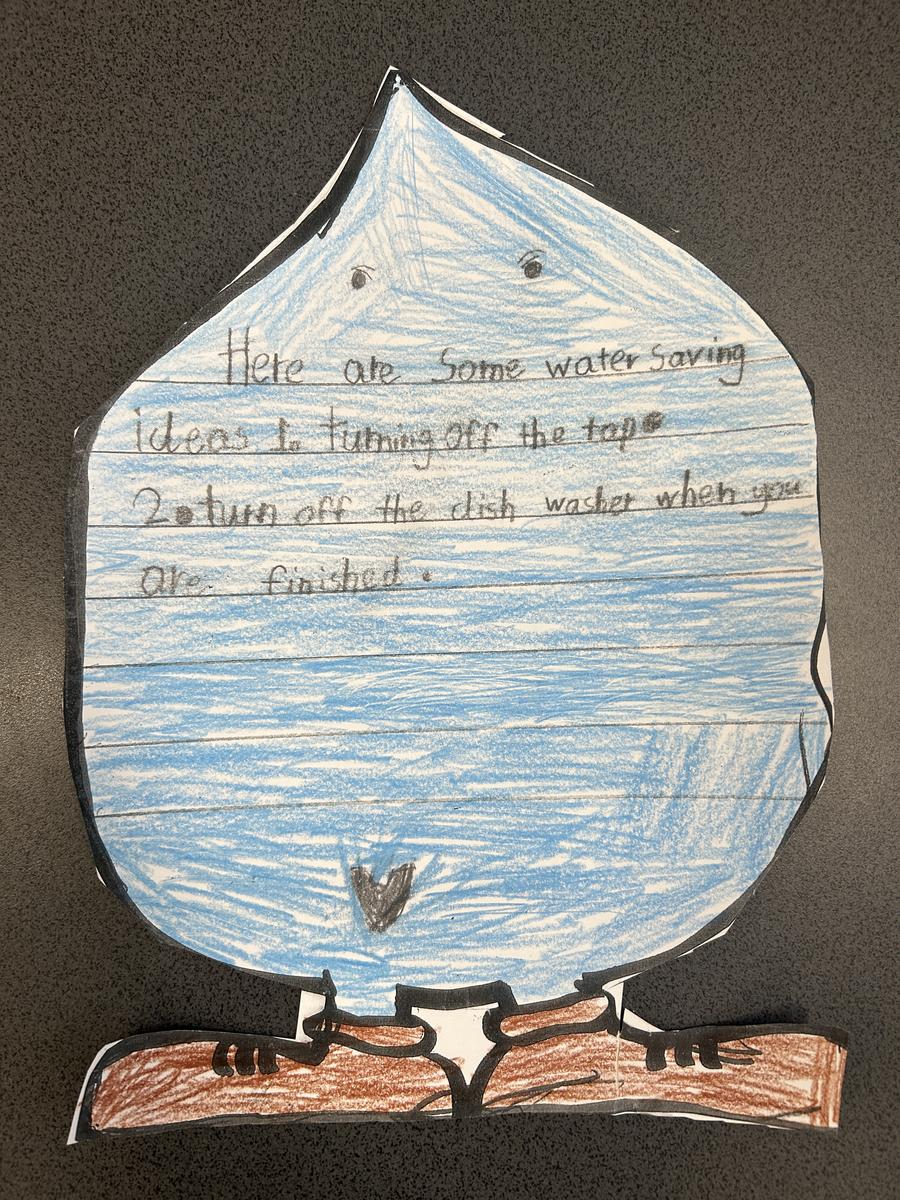 Here are Some water saving
ideas 1. turning off the tap.
2. turn off the dish washer when you
are finished.